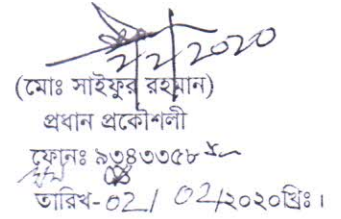 2/2/2020
(মোঃ সাইফুর রহমান)
প্রধান প্রকৌশলী
ফোনঃ ৯৩৪৩৩৫৮
তারিখ-02/ 02/২০২০খ্রিঃ।